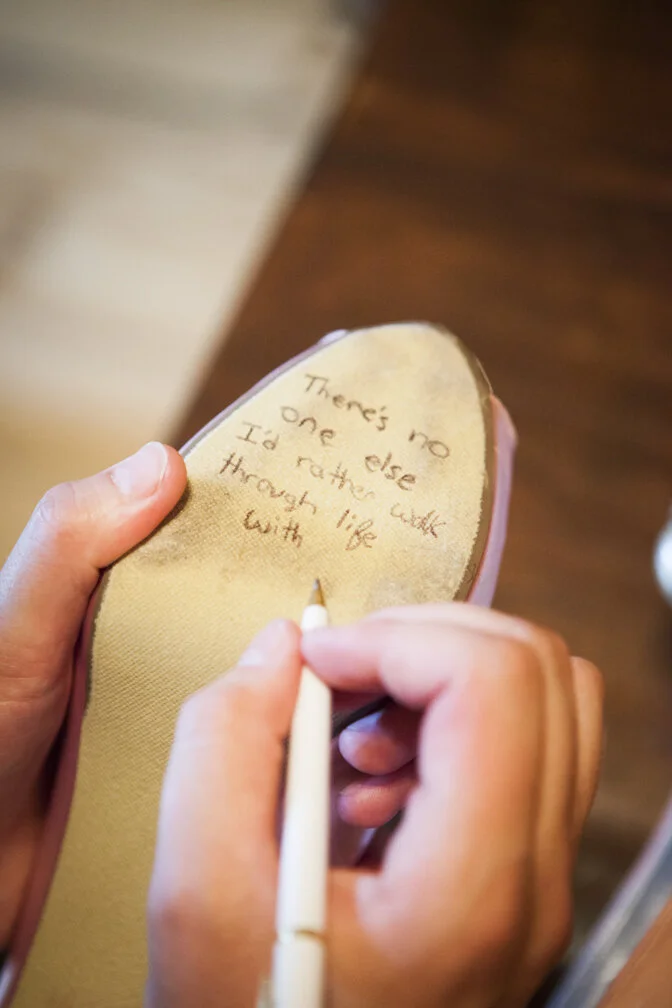 There's no
one else
I'd rather walk
through life
with